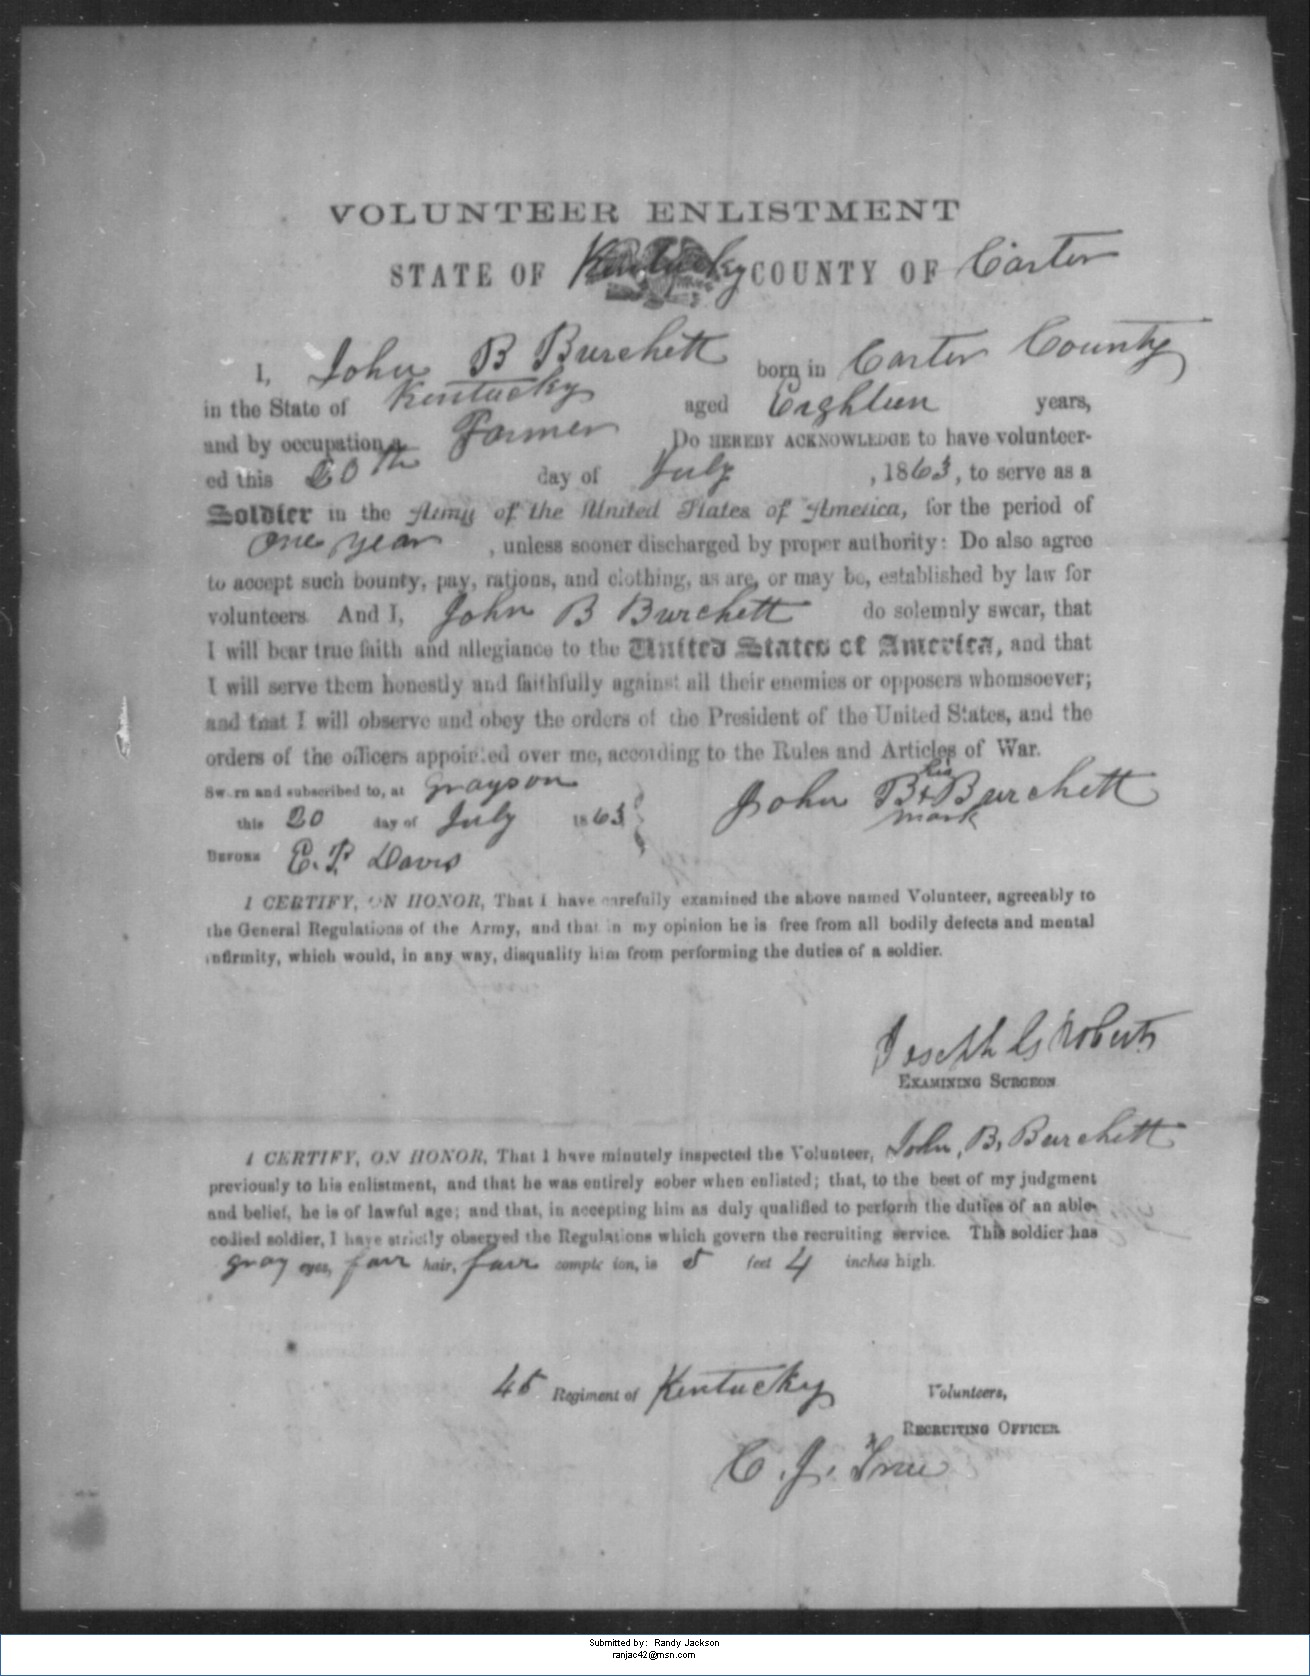 VOLUNTEER ENLISTMENT
STATE OF Kentucky COUNTY OF Carter
I, John B Burchett born in Carter County
in the State of Kentucky aged Eighteen years,
and by occupation a Farmer Do HEREBY ACKNOWLEDGE to have volunteer-
ed this 20th day of July, 1863, to serve as a
Soldier in the Army of the United States of America, for the period of
one year, unless sooner discharged by proper authority: Do also agree
to accept such bounty, pay, rations, and clothing, as are, or may be, established by law for
volunteers. And I, John B Burchett do solemnly swear, that
I will bear true faith and allegiance to the United States of America, and that
I will serve them honestly and faithfully against all their enemies or opposers whomsoever;
and that I will observe and obey the orders of the President of the United States, and the
orders of the officers appointed over me, according to the Rules and Articles of War.
Sworn and subscribed to, at Grayson
this 20 day of July 1863
BEFORE E. P. Davis
his
John B + Burchett
mark
I CERTIFY, ON HONOR, That I have carefully examined the above named Volunteer, agreeably to
the General Regulations of the Army, and that in my opinion he is free from all bodily defects and mental
infirmity, which would, in any way, disqualify him from performing the duties of a soldier.
Joseph G Roberts
EXAMINING SURGEON
I CERTIFY, ON HONOR, That I have minutely inspected the Volunteer, John, B, Burchett
previously to his enlistment, and that he was entirely sober when enlisted; that, to the best of my judgment
and belief, he is of lawful age; and that, in accepting him as duly qualified to perform the duties of an able-
bodied soldier, I have strictly observed the Regulations which govern the recruiting service. This soldier has
gray eyes, fair hair, fair complexion, is 5 feet 4 inches high.
45 Regiment of Kentucky Volunteers,
RECRUITING OFFICER
C. J. True
Submitted by: Randy Jackson
ranjac42@msn.com